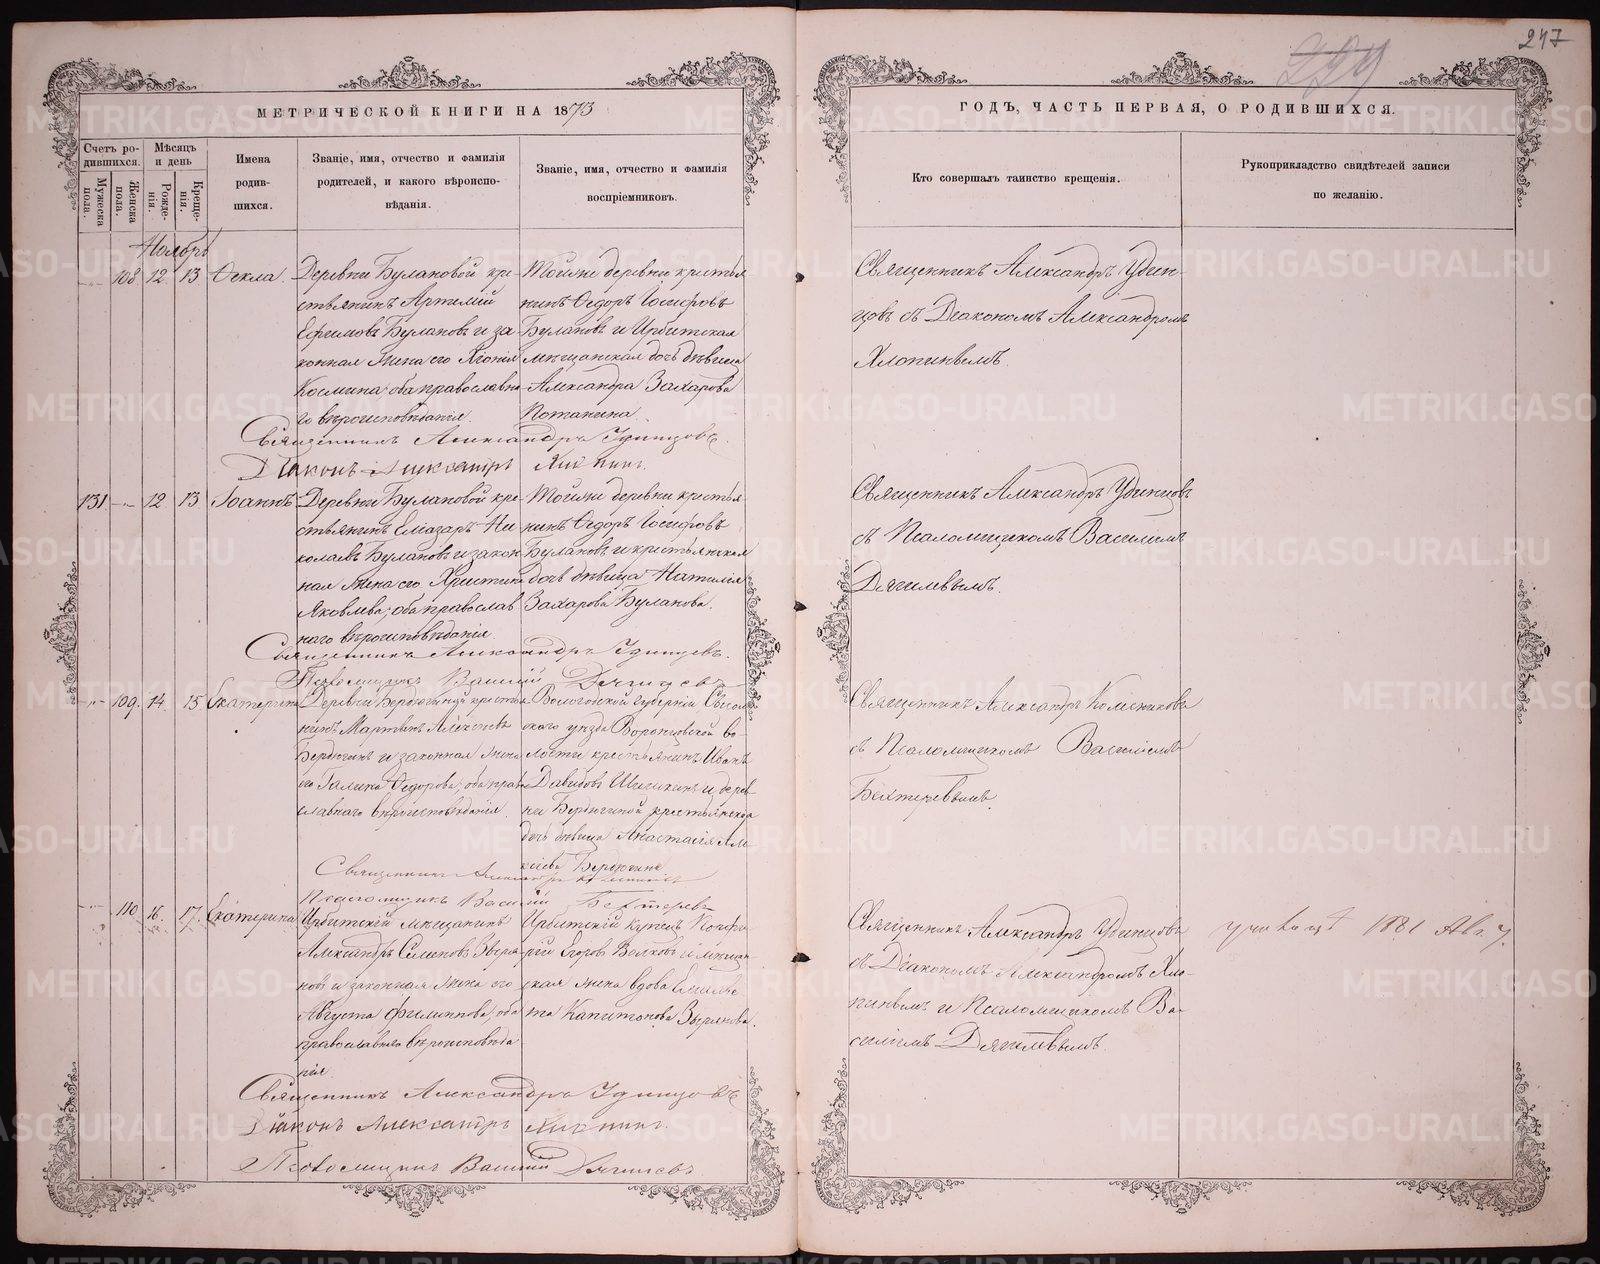 247
229
МЕТРИЧЕСКОЙ КНИГИ НА 1873
ГОДЪ, ЧАСТЬ ПЕРВАЯ, О РОДИВШИХСЯ.
Счетъ ро-
дившихся.
Мужеска пола.
Женска пола.
Мѣсяцъ
и день
Рожде-
нія.
Креще-
нія.
Имена
родив-
шихся.
Званіе, имя, отчество и фамилія
родителей, и какого вѣроиспо-
вѣданія.
Званіе, имя, отчество и фамилія
воспріемниковъ.
Кто совершалъ таинство крещенія.
Рукоприкладство свидѣтелей записи
по желанію.
Ноябрь
108 12 13 Ѳекла.
Деревни Булановой кре-
стьянинъ Артемій
Ефимовъ Булановъ и за-
конная жена его Агопія
Космина, оба православна-
го вѣроисповѣданія.
Тойже деревни крестья-
нинъ Ѳедоръ Іосифовъ
Булановъ и Ирбитская
мѣщанская дочь дѣвица
Александра Захарова
Потанина.
Священникъ Александръ Удин-
цовъ съ Діакономъ Александромъ
Хлопинымъ.
Священникъ Александръ Удинцовъ.
Діаконъ Александръ
131 12 13 Іоаннъ
Деревни Булановой кре-
стьянинъ Елеазаръ Ни-
колаевъ Булановъ и закон-
ная жена его Христина
Яковлева, оба православ-
наго вѣроисповѣданія
Тойже деревни крестья-
нинъ Ѳедоръ Іосифовъ
Булановъ и крестьянская
дочь дѣвица Наталія
Захарова Буланова.
Священникъ Александръ Удинцовъ
съ Псаломщикомъ Василіемъ
Дягилевымъ.
Священникъ Александръ Удинцовъ.
Псаломщикъ Василій Дягилевъ
109. 14. 15 Екатерина
Деревни Бердюгиной крестья-
нинъ Мартинъ Алексѣевъ
Бердюгинъ и законная жена
его Галина Ѳедорова, оба право-
славнаго вѣроисповѣданія.
Вологодской губерніи
уѣзда во-
лости крестьянинъ Иванъ
Давидовъ и дерев-
ни Бердюгиной крестьянская
дочь дѣвица Анастасія Але-
ксѣева Бердюгина
Священникъ Александръ
съ Псаломщикомъ Василіемъ
Бехтеревымъ.
Священникъ Александръ
Псаломщикъ Василій Бехтеревъ
110 16. 17. Екатерина
Ирбитскій мѣщанинъ
Александръ Семеновъ Зыря-
новъ и законная жена его
Августа Филиппова, оба
православнаго вѣроисповѣда-
нія.
Ирбитскій купецъ Порфи-
рій Егоровъ Волковъ и мѣщан-
ская жена вдова
Капитонова Зырянова.
Священникъ Александръ Удинцовъ
съ Діакономъ Александромъ Хло-
пинымъ и Псаломщикомъ Ва-
силіемъ Дягилевымъ.
1881 Авг. 7.
Священникъ Александръ Удинцовъ
Діаконъ Александръ
Псаломщикъ Василій Дягилевъ.
METRIKI.GASO-URAL.RU